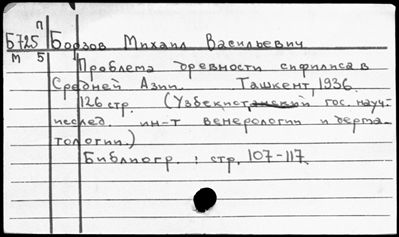 П
Б725 Борзов Михаил Васильевич
М 5
Проблема древности сифилиса в
Средней Азии. Ташкент, 1936.
126 стр. (Узбекистанский гос. науч.-
исслед. ин-т венерологии и дерма-
тологии.)
Библиогр.: стр. 107-117.